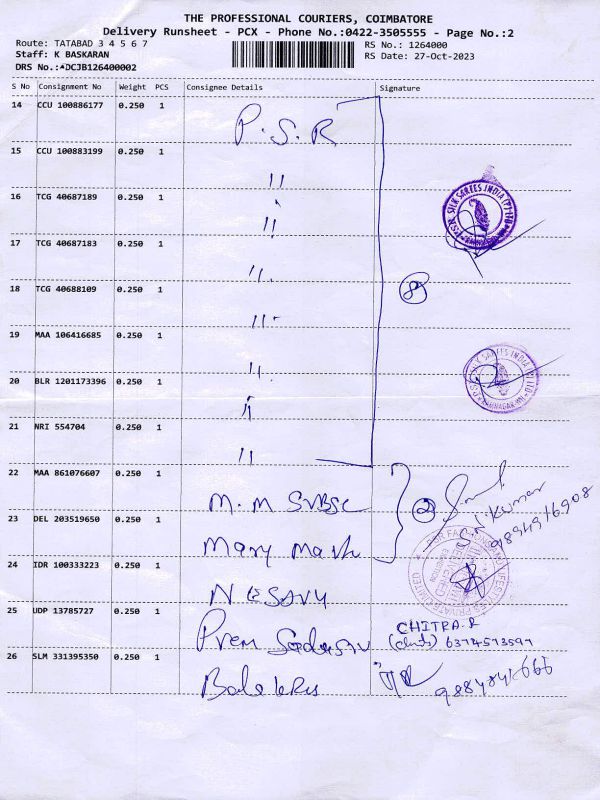 THE PROFESSIONAL COURIERS, COIMBATORE
Delivery Runsheet - PCX - Phone No.:0422-3505555 - Page No.:2
Route: TATABAD 3 4 5 6 7
RS No.: 1264000
Staff: K BASKARAN
RS Date: 27-Oct-2023
DRS No.:*DCJB126400002
S No Consignment No Weight PCS Consignee Details Signature
14 CCU 100886177 0.250 1 P.S.R
15 CCU 100883199 0.250 1 "
16 TCG 40687189 0.250 1 "
PSR SILK SAREES INDIA (P) LTD
17 TCG 40687183 0.250 1 "
18 TCG 40688109 0.250 1 "
8
19 MAA 106416685 0.250 1 "
20 BLR 1201173396 0.250 1 "
SILK SAREES INDIA (P) LTD
21 NRI 554704 0.250 1 "
22 MAA 861076607 0.250 1 M.M
2
Kumar
23 DEL 203519650 0.250 1 Mary
24 IDR 100333223 0.250 1 NESAVU
25 UDP 13785727 0.250 1 Prem
CHITRA.R
6374573597
26 SLM 331395350 0.250 1